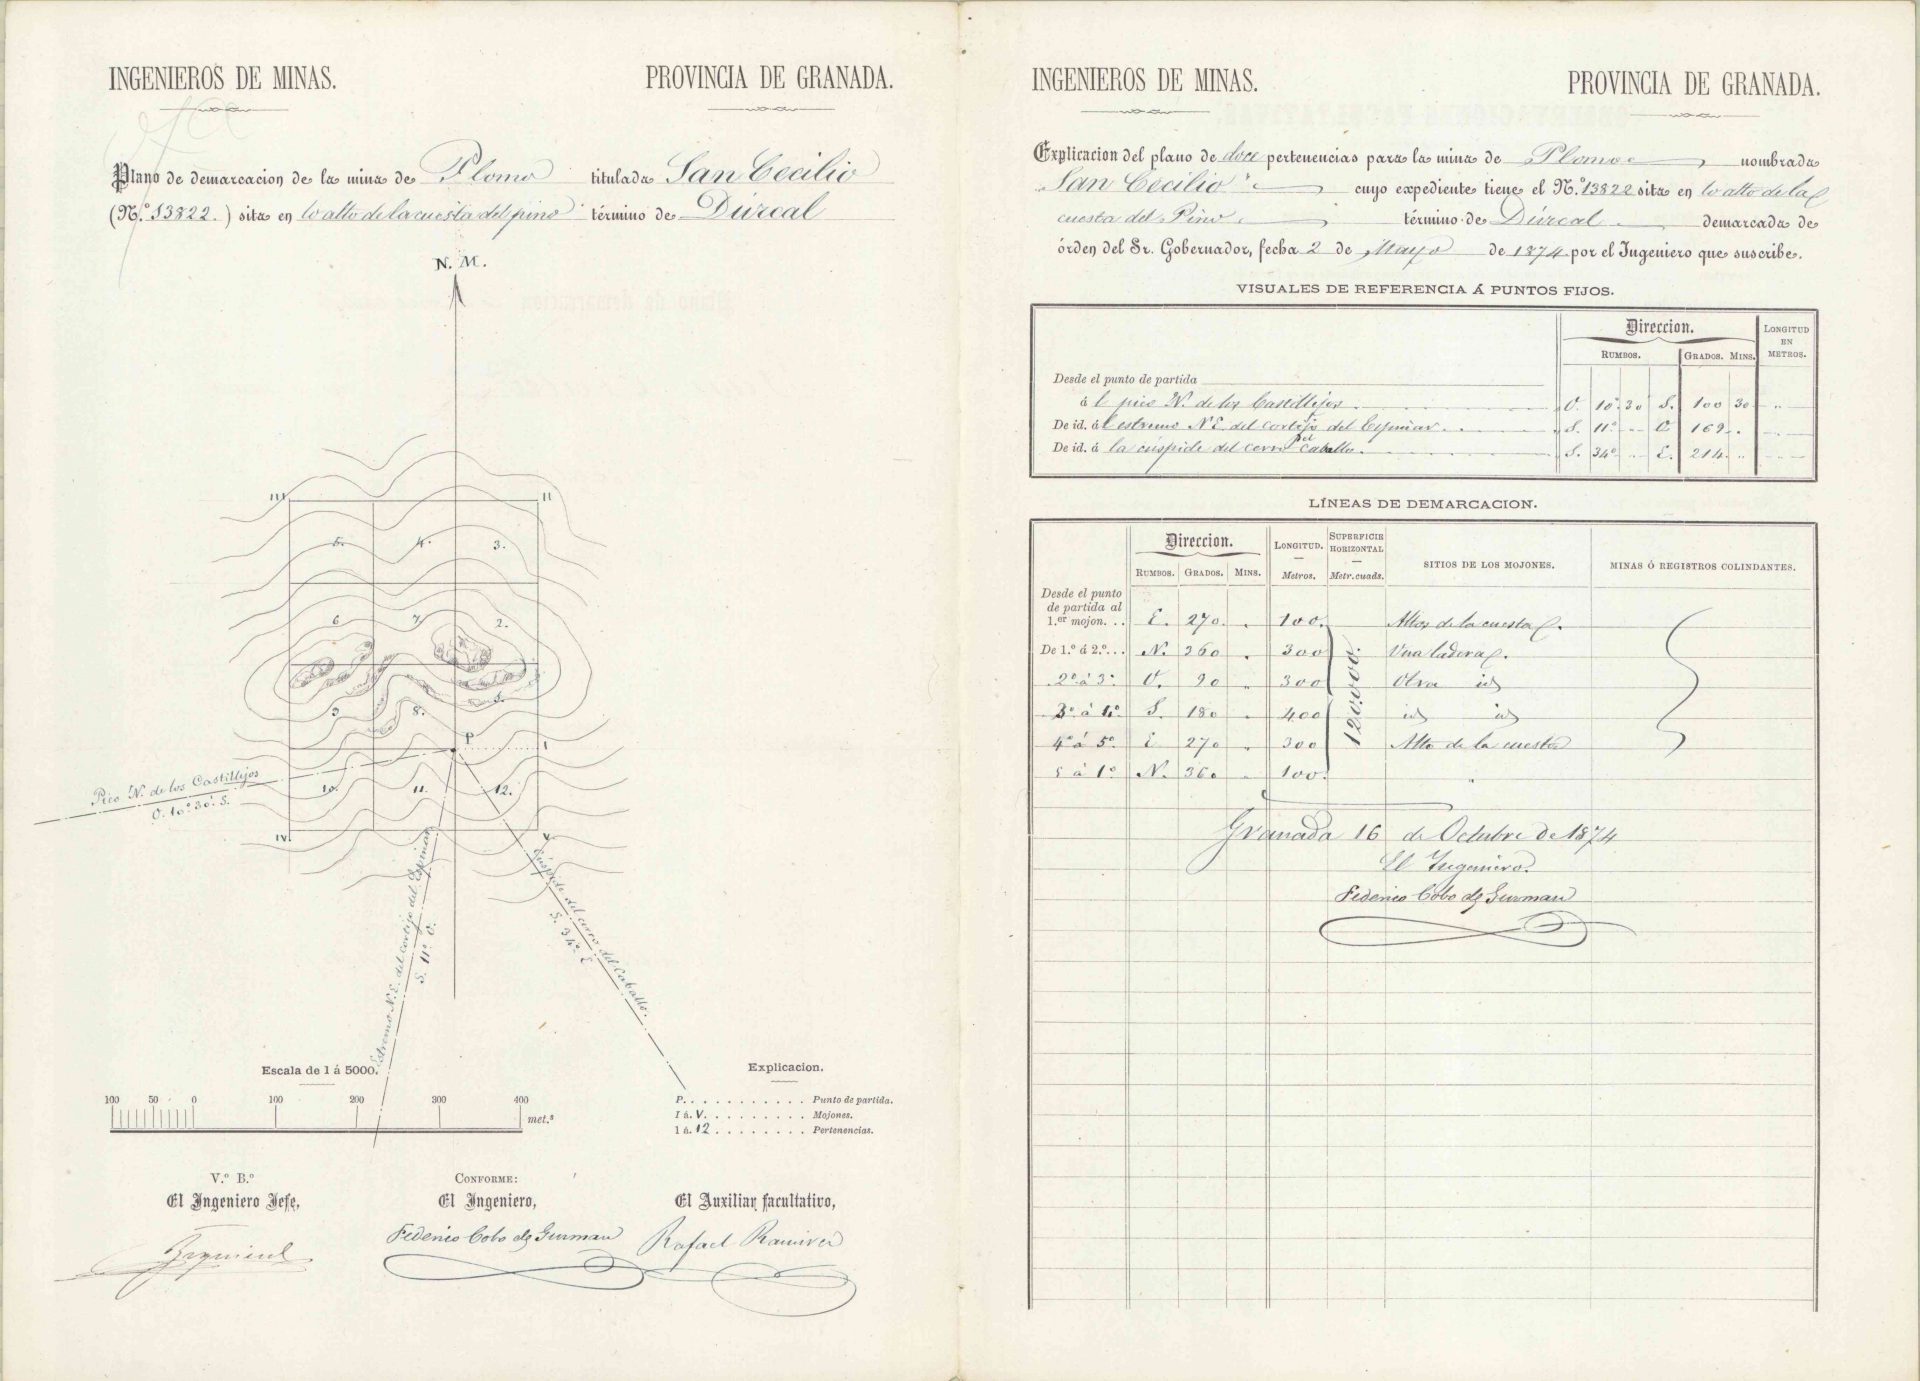 INGENIEROS DE MINAS. PROVINCIA DE GRANADA.
Plano de demarcacion de la mina de Plomo titulada San Cecilio
(N.º 13822.) sita en lo alto de la cuesta del pino término de Dúrcal
N. M.
III II
5. 4. 3.
6 7 2.
1.
9 8.
P I
Pico N. de los Castillejos
O. 10º 30' S.
10. 11. 12.
IV. V.
Estremo N.E. del cortijo del Espinar
S. 11º O.
Cúspide del cerro del Caballo.
S. 34º E
Escala de 1 á 5000.
100 50 0 100 200 300 400 met.s
Explicacion.
P. . . . . . . . . . . . Punto de partida.
I á. V. . . . . . . . . Mojones.
1 á. 12 . . . . . . . . Pertenencias.
V.º B.º
El Ingeniero Jefe,
CONFORME:
El Ingeniero,
Federico Cobo de Guzman
El Auxiliar facultativo,
Rafael Ramirez
INGENIEROS DE MINAS. PROVINCIA DE GRANADA.
Explicacion del plano de doce pertenencias para la mina de Plomo nombrada
San Cecilio cuyo expediente tiene el N.º 13822 sita en lo alto de la
cuesta del Pino término de Dúrcal demarcada de
órden del Sr. Gobernador, fecha 2 de Mayo de 1874 por el Ingeniero que suscribe.
VISUALES DE REFERENCIA Á PUNTOS FIJOS.
Direccion. LONGITUD EN METROS.
RUMBOS. GRADOS. MINS.
Desde el punto de partida
á l pico N. de los Castillejos. O. 10º 30 S. 100 30 "
De id. á l estremo N E. del cortijo del Espinar. S. 11º " O 169 "
De id. á la cúspide del cerro del Caballo. S. 34º " E. 214 "
LÍNEAS DE DEMARCACION.
Direccion. LONGITUD. SUPERFICIE HORIZONTAL SITIOS DE LOS MOJONES. MINAS Ó REGISTROS COLINDANTES.
RUMBOS. GRADOS. MINS. Metros. Metr. cuads.
Desde el punto
de partida al
1.er mojon. . . E. 270. " 100. Altos de la cuesta.
De 1.º á 2.º . . . N. 360 " 300 Una ladera.
2º á 3º O. 90 " 300 Otra id
3º á 4º S. 180 " 400 id id
4º á 5º E 270 " 300 Alto de la cuesta
5 á 1º N. 360 " 100. "
120.000.
Granada 16 de Octubre de 1874
El Ingeniero.
Federico Cobo de Guzman